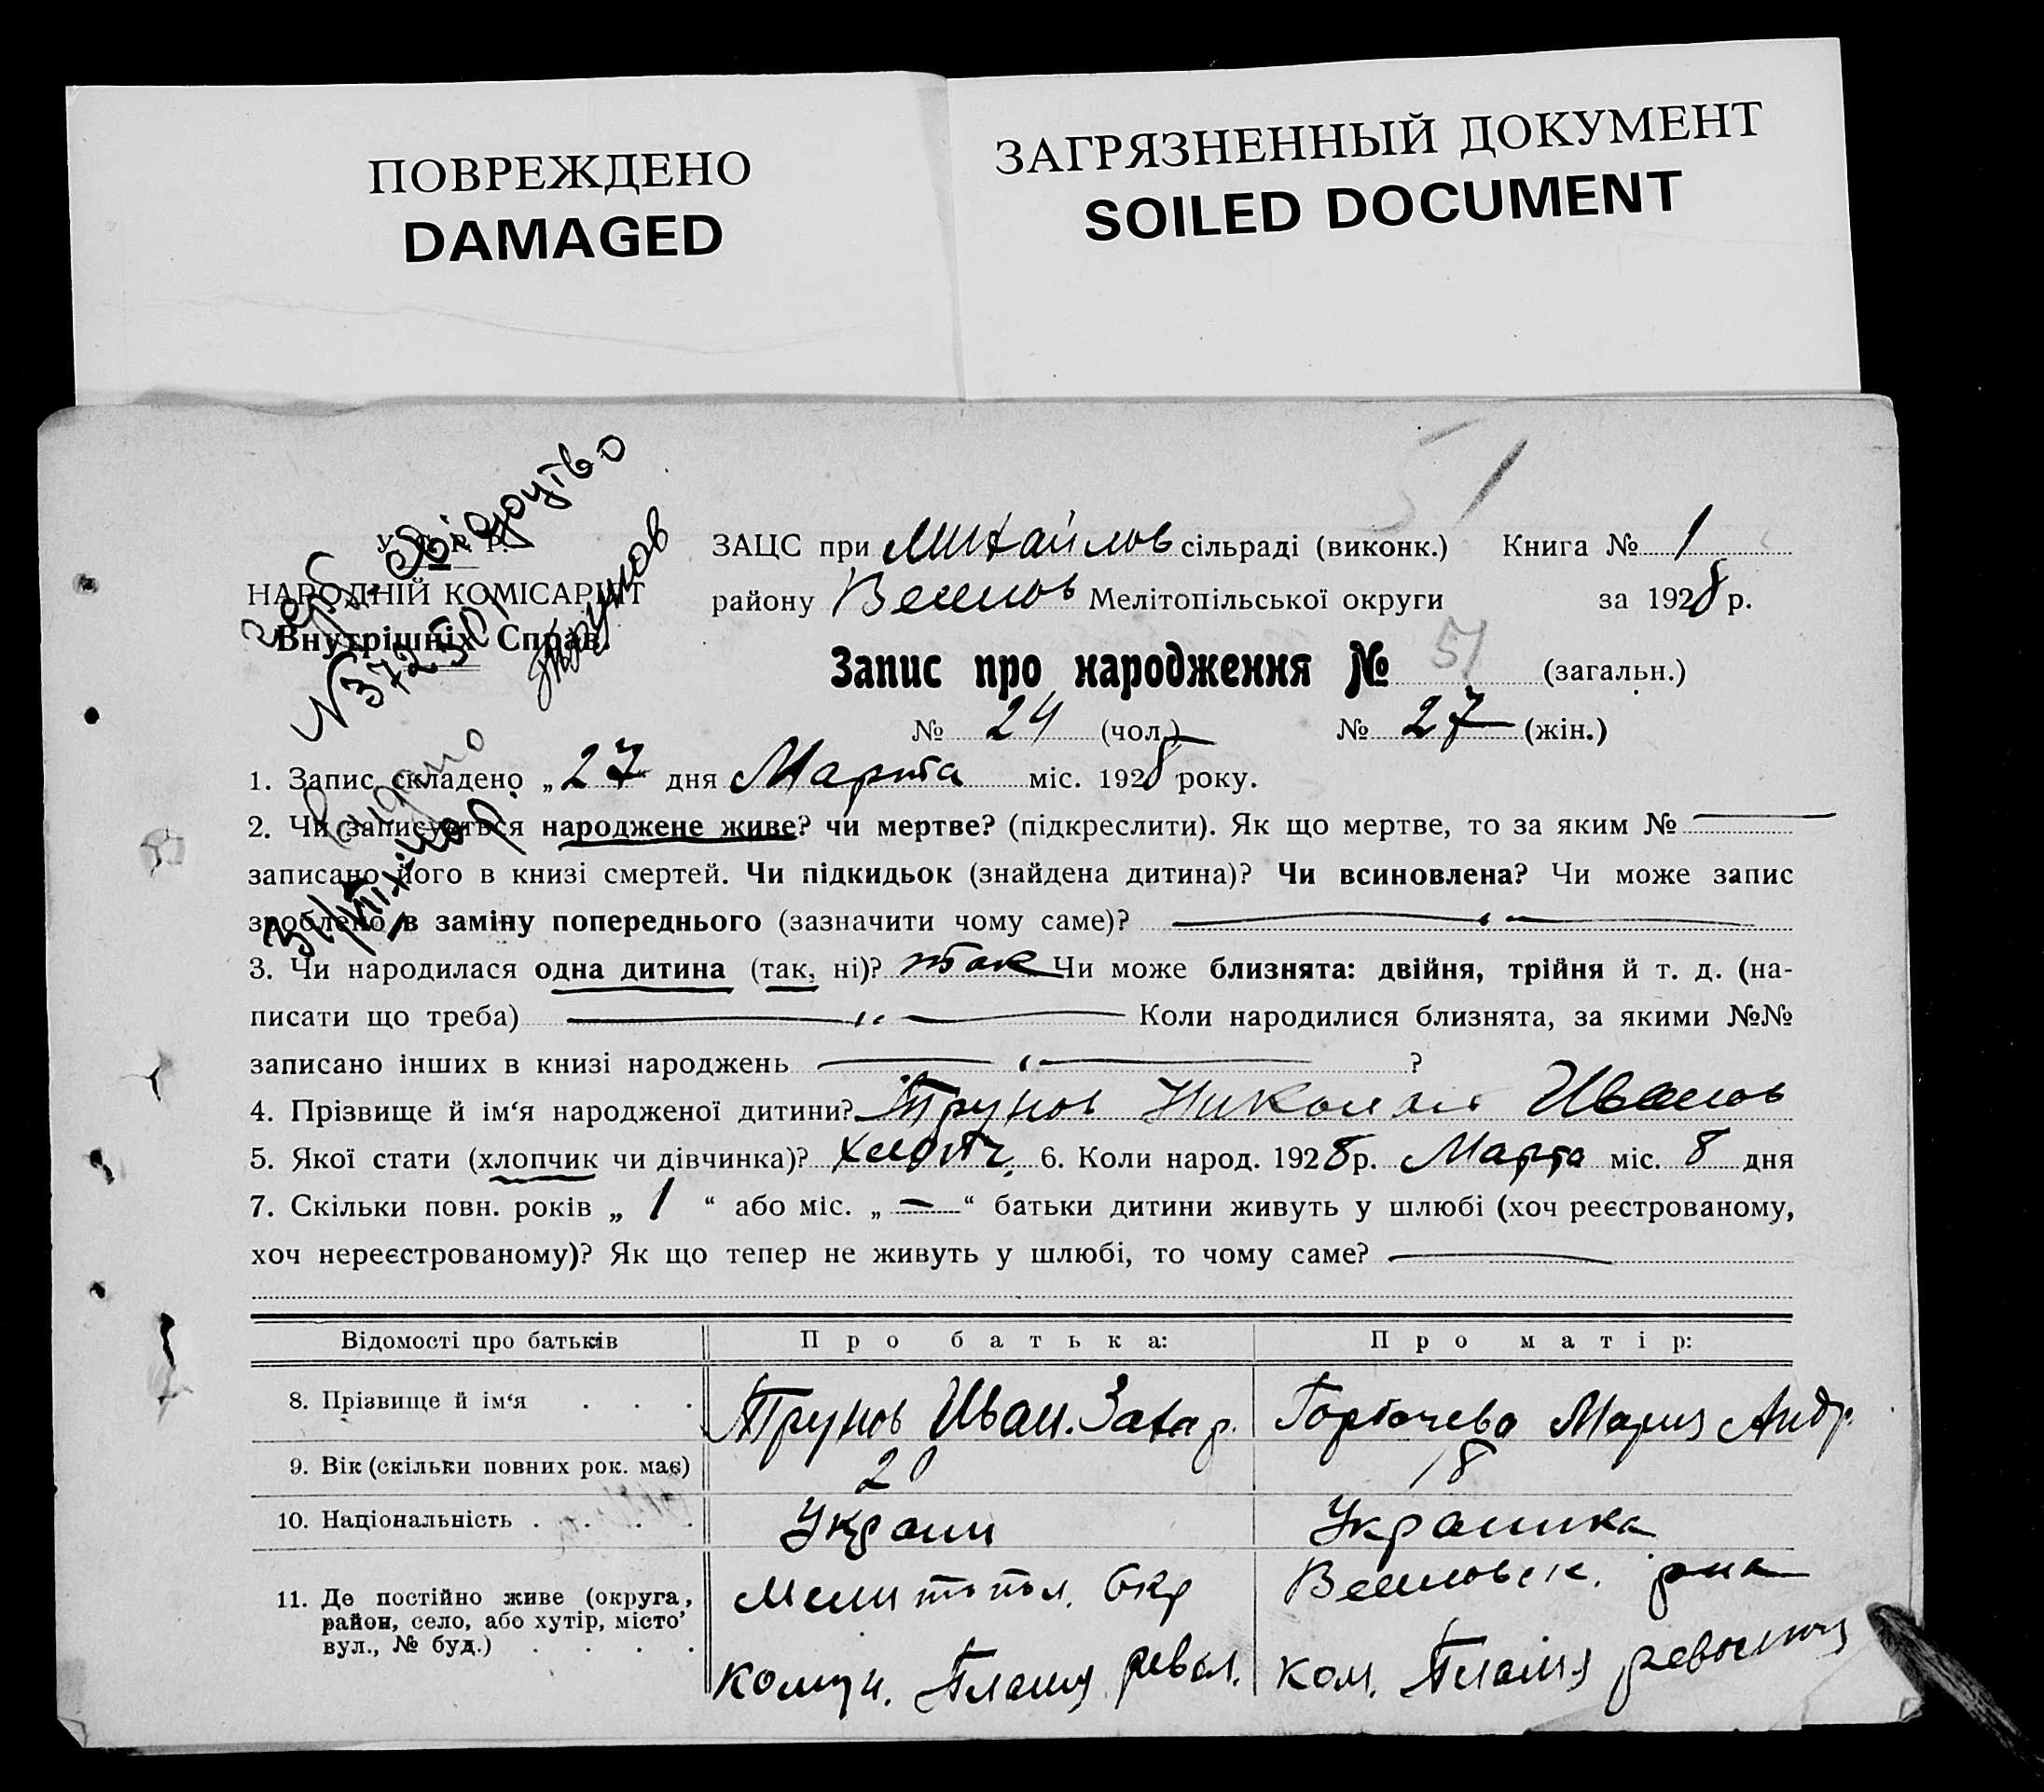 ПОВРЕЖДЕНО
DAMAGED
ЗАГРЯЗНЕННЫЙ ДОКУМЕНТ
SOILED DOCUMENT
51
У. С. Р. Р.
НАРОДНІЙ КОМІСАРІЯТ
Внутрішніх Справ.
свідоцтво
№ 372501
Трунов
видано
ЗАЦС при Михайлов сільраді (виконк.) Книга № 1
району Веселов Мелітопільської округи за 1928 р.
Запис про народження № 51 (загальн.)
№ 24 (чол.) № 27 (жін.)
1. Запис складено „27“ дня Марта міс. 1928 року.
2. Чи записується народжене живе? чи мертве? (підкреслити). Як що мертве, то за яким №
записано його в книзі смертей. Чи підкидьок (знайдена дитина)? Чи всиновлена? Чи може запис
зроблено в заміну попереднього (зазначити чому саме)?
3. Чи народилася одна дитина (так, ні)? так Чи може близнята: двійня, трійня й т. д. (на-
писати що треба) Коли народилися близнята, за якими №№
записано інших в книзі народжень ?
4. Прізвище й ім‘я народженої дитини? Трунов Николай Иванов
5. Якої стати (хлопчик чи дівчинка)? хлопч. 6. Коли народ. 1928 р. Марта міс. 8 дня
7. Скільки повн. років „ 1 “ або міс. „ — “ батьки дитини живуть у шлюбі (хоч реєстрованому,
хоч нереєстрованому)? Як що тепер не живуть у шлюбі, то чому саме?
Відомості про батьків Про батька: Про матір:
8. Прізвище й ім‘я . . . Трунов Иван. Захар. Горбачева Мария Андр.
9. Вік (скільки повних рок. має) 20 18
10. Національність . . . . Украин Украинка
11. Де постійно живе (округа, район, село, або хутір, місто’ вул., № буд.) . . . .
Мелитопол. Окр Веселовск. рик
комун. Пламя револ. ком. Пламя